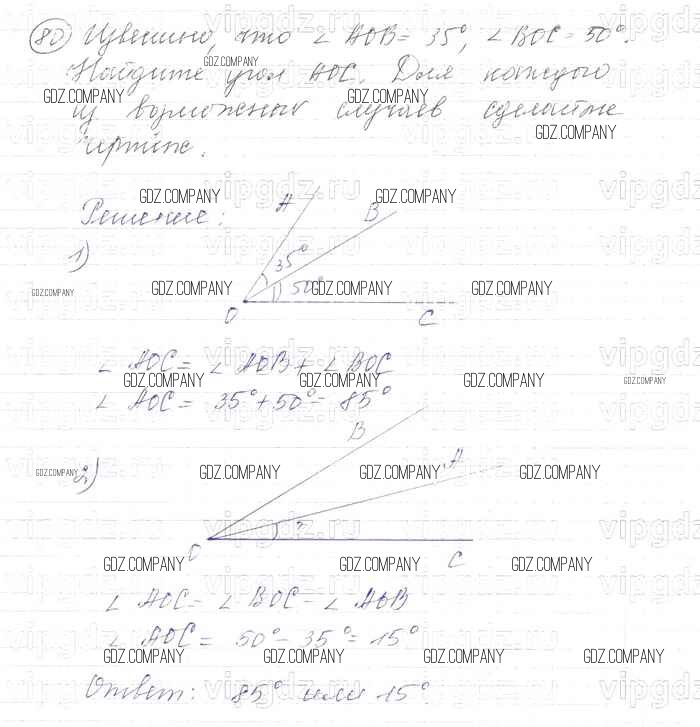 80) Известно, что ∠ AOB = 35°, ∠ BOC = 50°.
Найдите угол AOC. Для каждого
из возможных случаев сделайте
чертёж.
Решение:
1)
A
B
35°
50°
O
C
∠ AOC = ∠ AOB + ∠ BOC
∠ AOC = 35° + 50° = 85°
2)
B
A
?
O
C
∠ AOC = ∠ BOC - ∠ AOB
∠ AOC = 50° - 35° = 15°
Ответ: 85° или 15°.
GDZ.COMPANY
vipgdz.ru